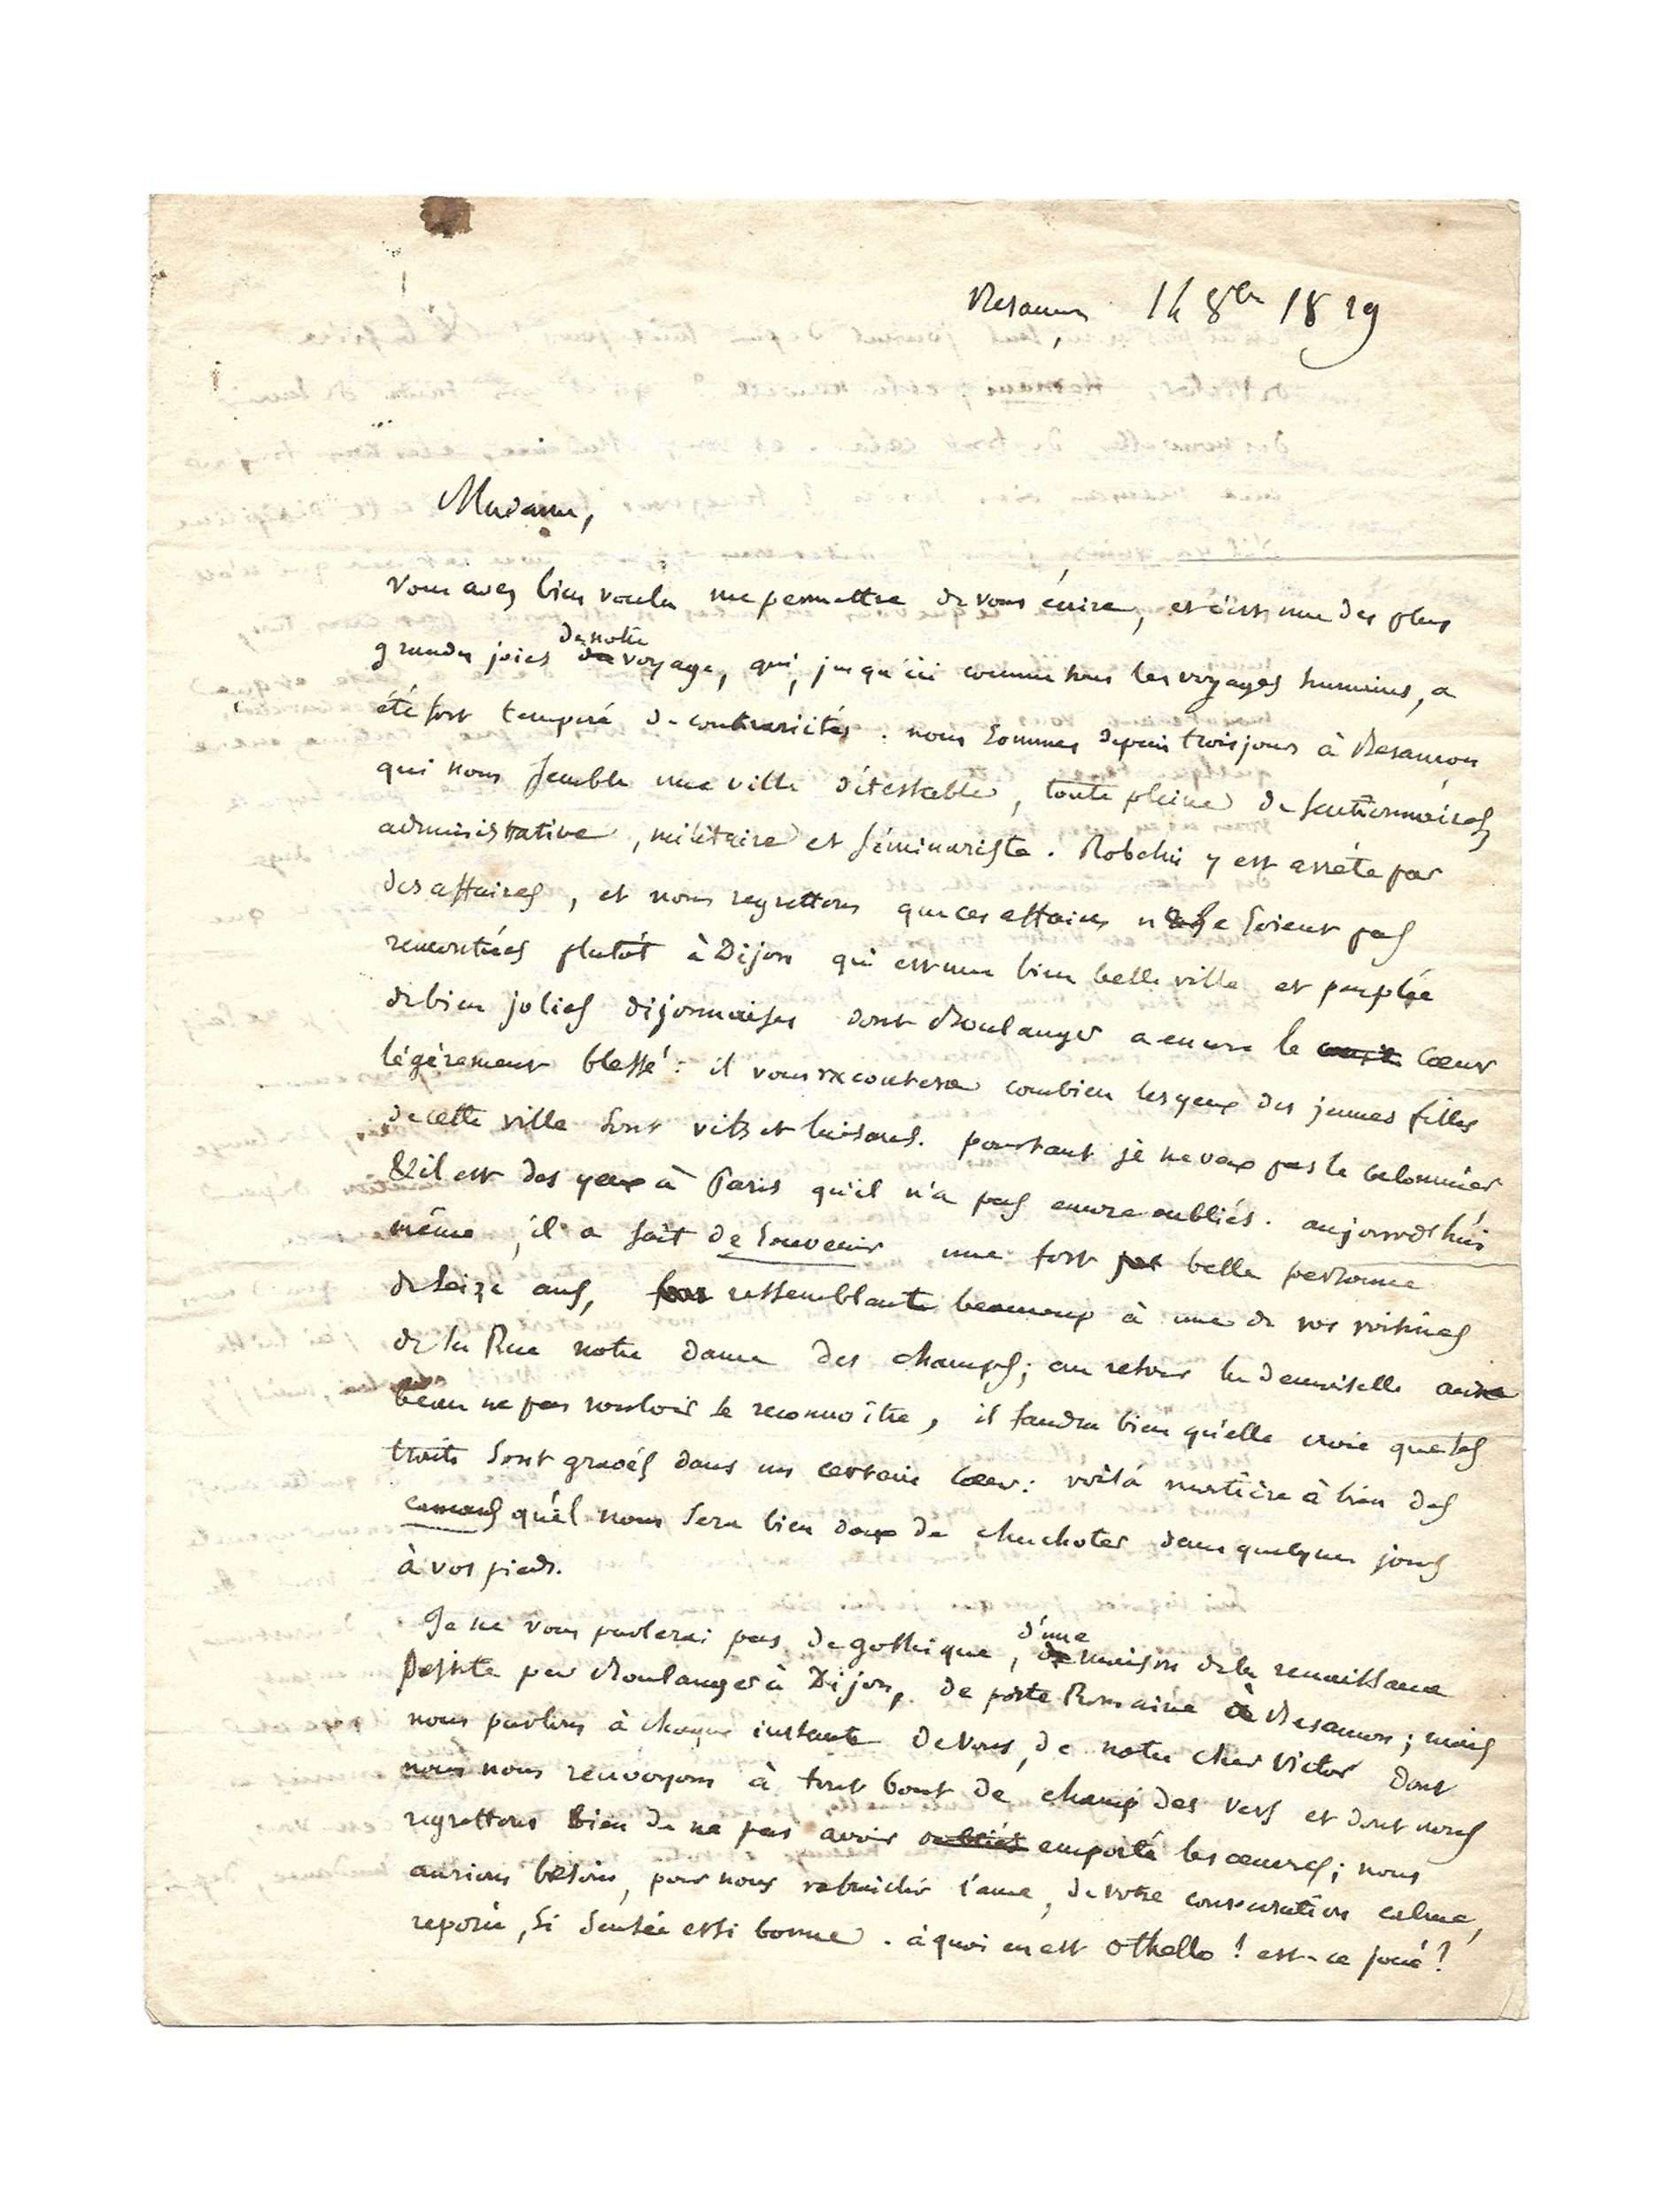 Besançon, 16 8bre 1829
Madame,
Vous avez bien voulu me permettre de vous écrire, et c'est une des plus
grandes joies de notre voyage, qui, jusqu'ici comme tous les voyages humains, a
été fort tempéré de contrariétés. nous sommes depuis trois jours à Besançon
qui nous semble une ville détestable, toute pleine de fonctionnaires,
administrative, militaire et séminariste. Robelin y est arrêté par
des affaires, et nous regrettons que ces affaires ne se soient pas
rencontrées plutôt à Dijon qui est une bien belle ville et peuplée
de bien jolies dijonnaises dont Boulanger a encore le cœur
légèrement blessé : il vous racontera combien les yeux des jeunes filles
de cette ville sont vifs et luisans. pourtant je ne veux pas le calomnier
& il est des yeux à Paris qu'il n'a pas encore oubliés. aujourd'hui
même, il a fait de souvenir une fort belle personne
de seize ans, ressemblante beaucoup à une de vos voisines
de la Rue notre dame des champs ; au retour la demoiselle aura
beau ne pas vouloir se reconnoître, il faudra bien qu'elle croie que ses
traits sont gravés dans un certain cœur : voilà matière à bien des
cancans qu'il nous sera bien doux de chuchoter dans quelques jours
à vos pieds.
Je ne vous parlerai pas de gothique, d'une maison de la renaissance
peinte par Boulanger à Dijon, de porte Romaine à Besançon ; mais
nous parlons à chaque instant de vous, de notre cher Victor dont
nous nous renvoyons à tout bout de champ des vers et dont nous
regrettons bien de ne pas avoir emporté les œuvres ; nous
aurions besoin, pour nous rafraichir l'ame, de votre conversation calme,
reposée, si sensée et si bonne. à quoi en est Othello ? est-ce joué ?